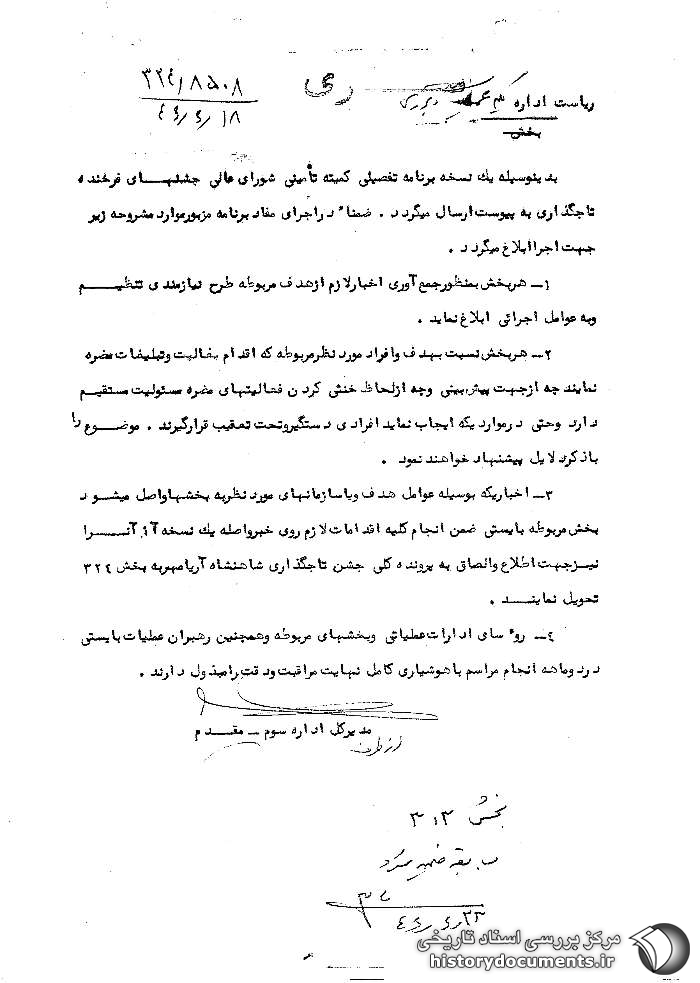 ۳۲۴/۸۵۰۸
ریاست اداره
بخش
بدینوسیله یك نسخه برنامه تفصیلی کمیته تأمینی شورای عالی جشنهای فرخنده
تاجگذاری به پیوست ارسال میگردد . ضمنا" در اجرای مفاد برنامه مزبور موارد مشروحه زیر
جهت اجرا ابلاغ میگردد .
۱ـ هربخش بمنظور جمع آوری اخبار لازم از هدف مربوطه طرح نیازمندی تنظیم
وبه عوامل اجرائی ابلاغ نماید .
۲ـ هربخش نسبت بهدف وافراد مورد نظر مربوطه که اقدام بفعالیت وتبلیغات مضره
نمایند چه از جهت پیش بینی وچه از لحاظ خنثی کردن فعالیتهای مضره مسئولیت مستقیم
دارد وحتی در مواردیکه ایجاب نماید افرادی دستگیر وتحت تعقیب قرارگیرند . موضوع را
باذکر دلایل پیشنهاد خواهند نمود .
۳ـ اخباریکه بوسیله عوامل هدف ویا سازمانهای مورد نظر به بخشها واصل میشود
بخش مربوطه بایستی ضمن انجام کلیه اقدامات لازم روی خبر واصله یك نسخه از آنرا
نیز جهت اطلاع والصاق به پرونده کلی جشن تاجگذاری شاهنشاه آریامهر به بخش ۳۲٤
تحویل نمایند .
٤ـ روسای ادارات عملیاتی وبخشهای مربوطه وهمچنین رهبران عملیات بایستی
در دوماهه انجام مراسم باهوشیاری کامل نهایت مراقبت ودقت را مبذول دارند .
مدیرکل اداره سوم ـ مقدم
از طرف
بخش ۳۱۳
مرکز بررسی اسناد تاریخی
historydocuments.ir